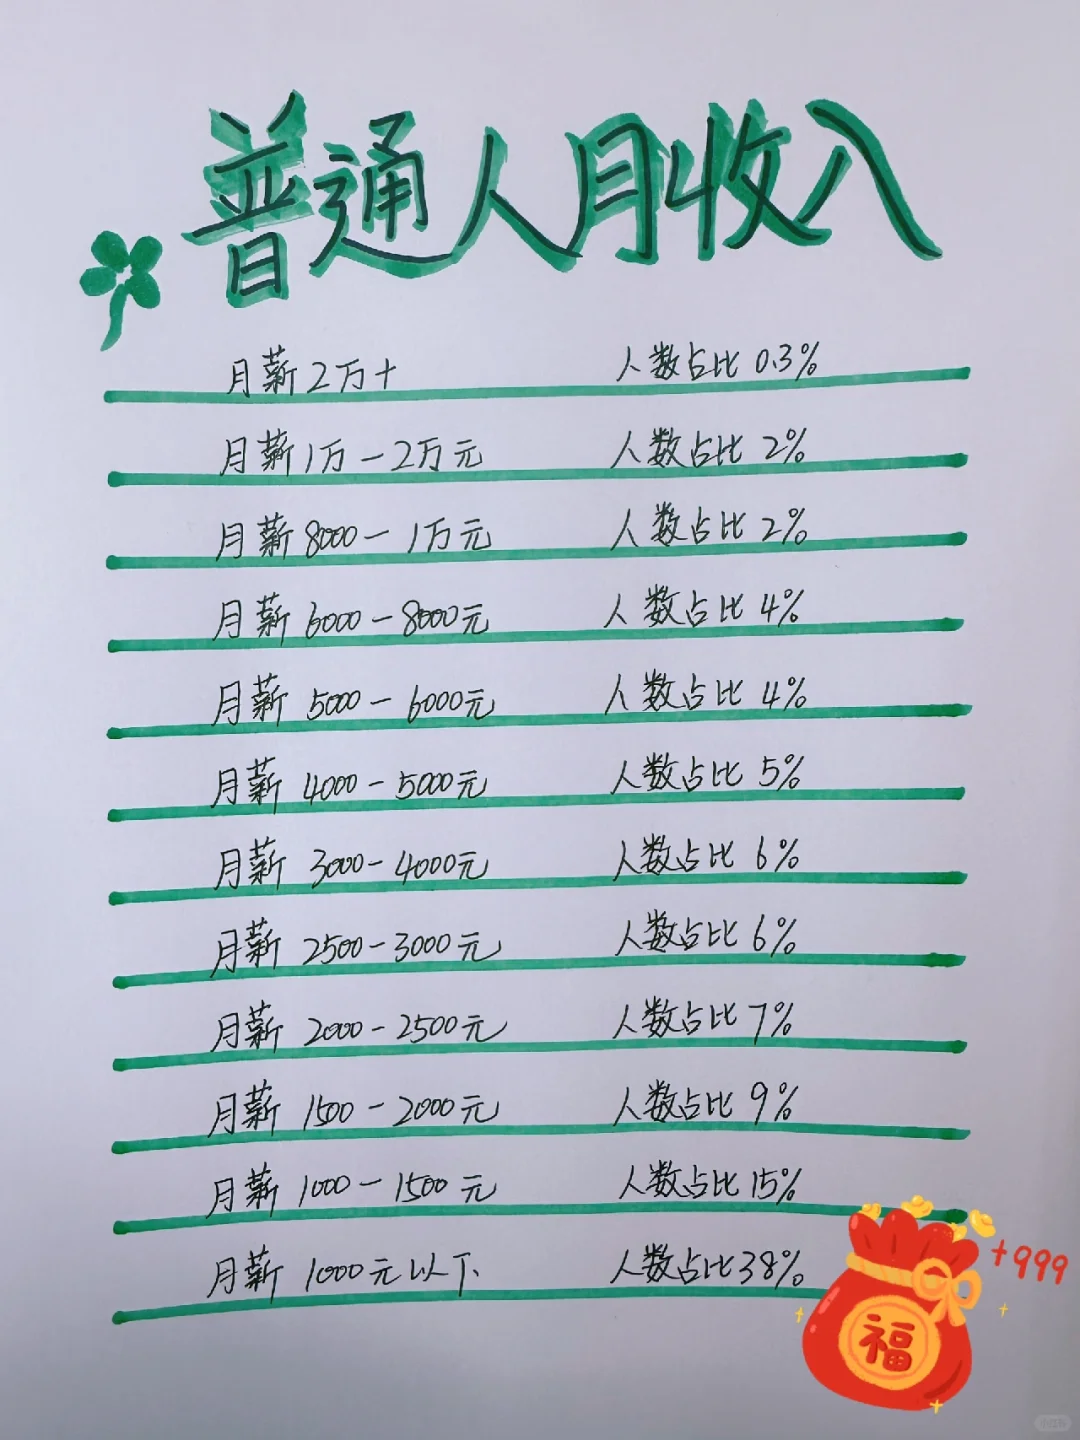 普通人月收入
月薪2万+ 人数占比 0.3%
月薪1万-2万元 人数占比 2%
月薪8000-1万元 人数占比 2%
月薪6000-8000元 人数占比 4%
月薪5000-6000元 人数占比 4%
月薪4000-5000元 人数占比 5%
月薪3000-4000元 人数占比 6%
月薪2500-3000元 人数占比 6%
月薪2000-2500元 人数占比 7%
月薪1500-2000元 人数占比 9%
月薪1000-1500元 人数占比 15%
月薪1000元以下 人数占比 38%
+999
福
小红书